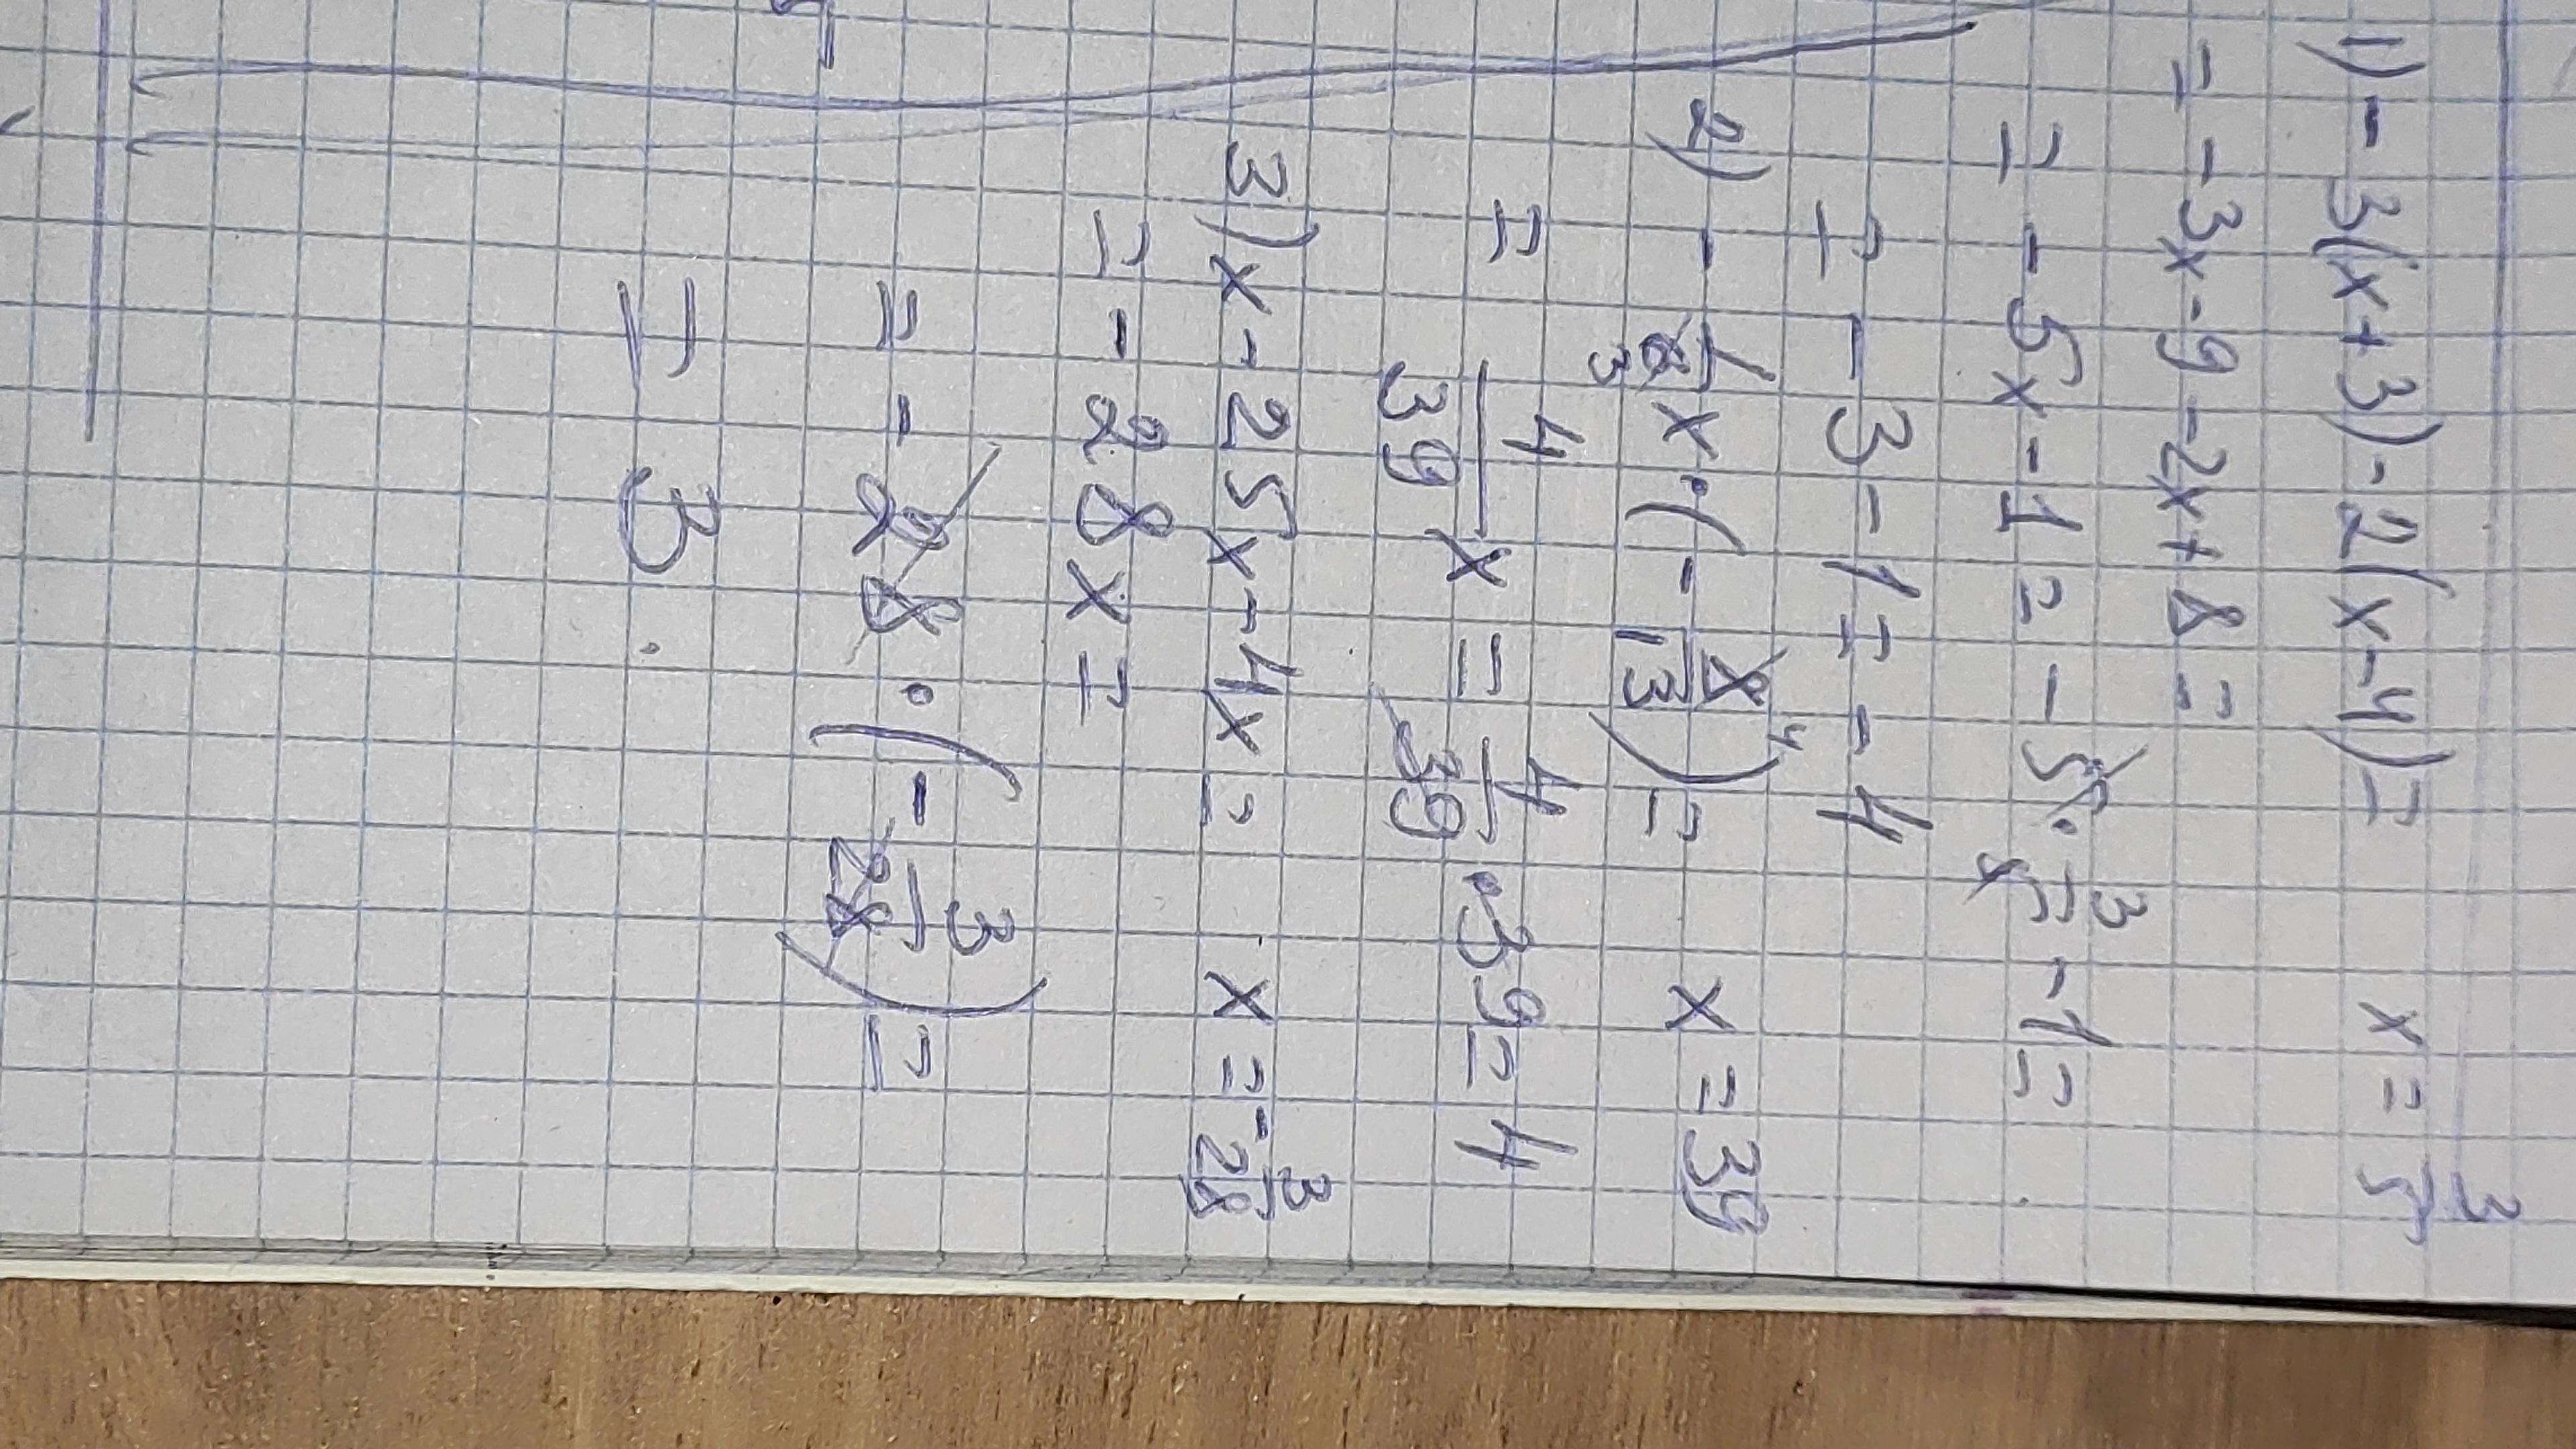 1) - 3(x + 3) - 2(x - 4) =   x = 3/5
= - 3x - 9 - 2x + 8 =
= - 5x - 1 = - 5 · 3/5 - 1 =
= - 3 - 1 = - 4
2) - 1/6 3 x · (- 8/13 4) =   x = 39
= 4/39 x = 4/39 · 39 = 4
3) x - 25x - 4x =   x = - 3/28
= - 28x =
= - 28 · (- 3/28) =
= 3.